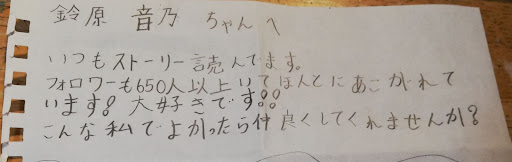 鈴原 音乃 ちゃんへ
いつもストーリー読んでます。
フォロワーも650人以上いてほんとにあこがれて
います!大好きです!!
こんな私でよかったら仲良くしてくれませんか?